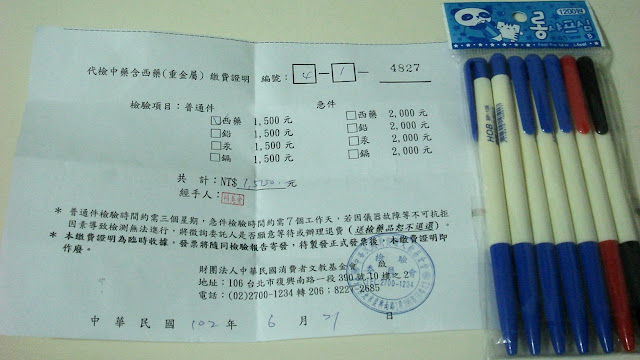 代檢中藥含西藥(重金屬)繳費證明 編號: 4 — 1 — 4827
檢驗項目:普通件 急件
☑西藥 1,500 元 □西藥 2,000 元
□鉛 1,500 元 □鉛 2,000 元
□汞 1,500 元 □汞 2,000 元
□鎘 1,500 元 □鎘 2,000 元
共 計:NT$ 元
經手人:
* 普通件檢驗時間約需三個星期,急件檢驗時間約需7個工作天,若因儀器故障等不可抗拒
因素導致檢測無法進行,將徵詢委託人是否願意等待或辦理退費(送檢藥品恕不退還)。
* 本繳費證明為臨時收據,發票將隨同檢驗報告寄發,待製發正式發票後,本繳費證明即
作廢。
財團法人中華民國消費者文教基金會 啟
地址:106 台北市復興南路一段 390 號 10 樓之 2
電話:(02)2700-1234 轉 206;8227-2685
中 華 民 國 102 年 6 月 21 日
檢驗
2700-1234
1200원
롱
샤프심
HOB